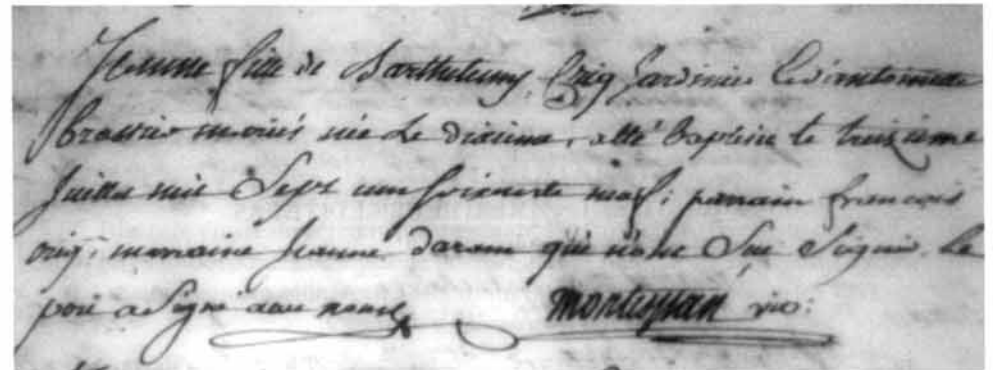 Jeanne fille de Barthelemy Criq Jardinier et d'antoinette
brassier mariés née le dixieme, atté baptisée le treizieme
Juillet mil Sept cens soixante neuf; parrain francois
criq, marraine Jeanne daram qui n'ont Sçu Signer. le
pere a Signé avec nous
montespan vic: